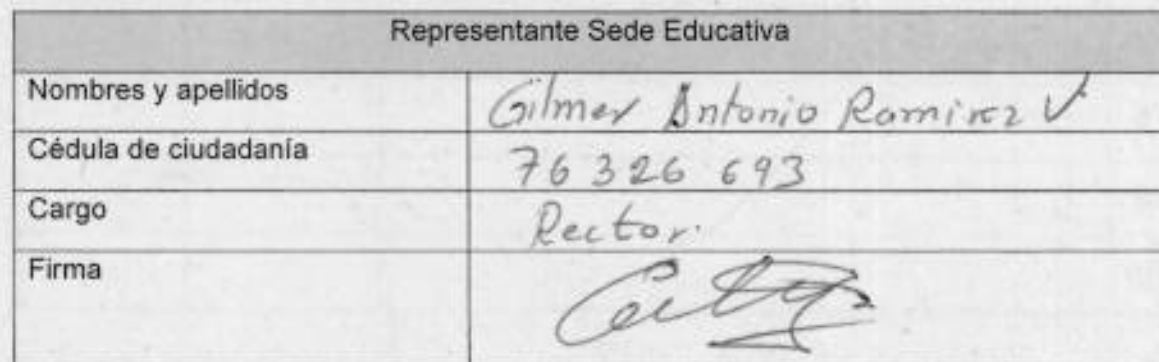 Representante Sede Educativa
Nombres y apellidos Gilmer Antonio Ramirez V
Cédula de ciudadanía 76 326 693
Cargo Rector.
Firma